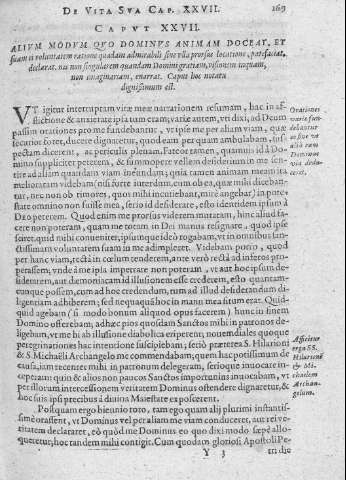 DE VITA SVA CAP. XXVII. 169
CAPVT XXVII.
ALIVM MODVM QVO DOMINVS ANIMAM DOCEAT, ET
suam ei voluntatem ratione quadam admirabili sine vlla prorsus locutione, patefaciat,
declarat. nis non singularem quandam Domini gratiam, visionem
non imaginariam, enarrat. Caput hoc notatu
dignissimum est.
VT igitur interruptam vitæ meæ narrationem resumam, hac in af-
flictione & anxietate ipsa tum eram; variæ autem, vti dixi, ad Deum
passim orationes pro me fundebantur, vt ipse me per aliam viam, quæ
securior foret, ducere dignaretur, quod eam per quam ambulabam, su-
spectam dicerent, ac periculis plenam. Fateor tamen, quamuis id à Do-
mino suppliciter peterem, & summopere vellem desiderium in me sen-
tire ad aliam quandam viam ineundam; quia tamen animam meam ita
melioratam videbam (nisi forte interdum, cum ob ea, quæ mihi diceban-
tur, nec non ob timores, quos mihi incutiebant, mirè angebar) in pote-
state omnino non fuisse mea, seriò id desiderare, esto identidem ipsum à
DEO peterem. Quod enim me prorsus viderem mutatam, hinc aliud fa-
cere non poteram, quam me totam in Dei manus resignare, quod ipse
sciret, quid mihi conueniret, ipsumque ideò rogabam, vt in omnibus san-
ctissimam voluntatem suam in me adimpleret. Videbam porrò, quod
per hanc viam, recta in cœlum tenderem, ante verò recta ad inferos pro-
perassem; vnde à me ipsa impetrare non poteram, vt aut hoc ipsum de-
siderarem, aut dæmoniacam id illusionem esse crederem, esto quantam-
cunque possem, cum ad hoc credendum, tum ad illud desiderandum di-
ligentiam adhiberem; sed nequaquã hoc in manu mea situm erat. Quid-
quid agebam (si modo bonum aliquod opus facerem) hunc in finem
Domino offerebam; adhæc pios quosdam Sanctos mihi in patronos de-
ligebam, vt me hi ab illusione diabolica eriperent; nouemdiales quoque
peregrinationes hac intentione suscipiebam; seriò prætereà S. Hilarioni
& S. Michaëli Archangelo me commendabam; quem hac potissimum de
causa, iam recenter mihi in patronum delegeram, serioque inuocare in-
cœperam: quin & alios non paucos Sanctos importunius inuocabam, vt
per illorum intercessionem veritatem Dominus ostendere dignaretur, &
hoc suis ipsi precibus à diuina Maiestate exposcerent.
Postquam ergo biennio toto, tam ego quam alij plurimi instantis-
simè orassent, vt Dominus vel per aliam me viam conduceret, aut rei ve-
ritatem declararet, eò quòd me Dominus eo quo dixi modo sæpè allo-
queretur, hoc tandem mihi contigit. Cum quodam gloriosi Apostoli Pe-
Y 3 tri die
Orationes
variæ fun-
debantur
vt
aliã eam
Dominus
via dedu-
ceret.
Afficitur
erga SS.
Hilarionẽ
& Mi-
chaëlem
Archan-
gelum.